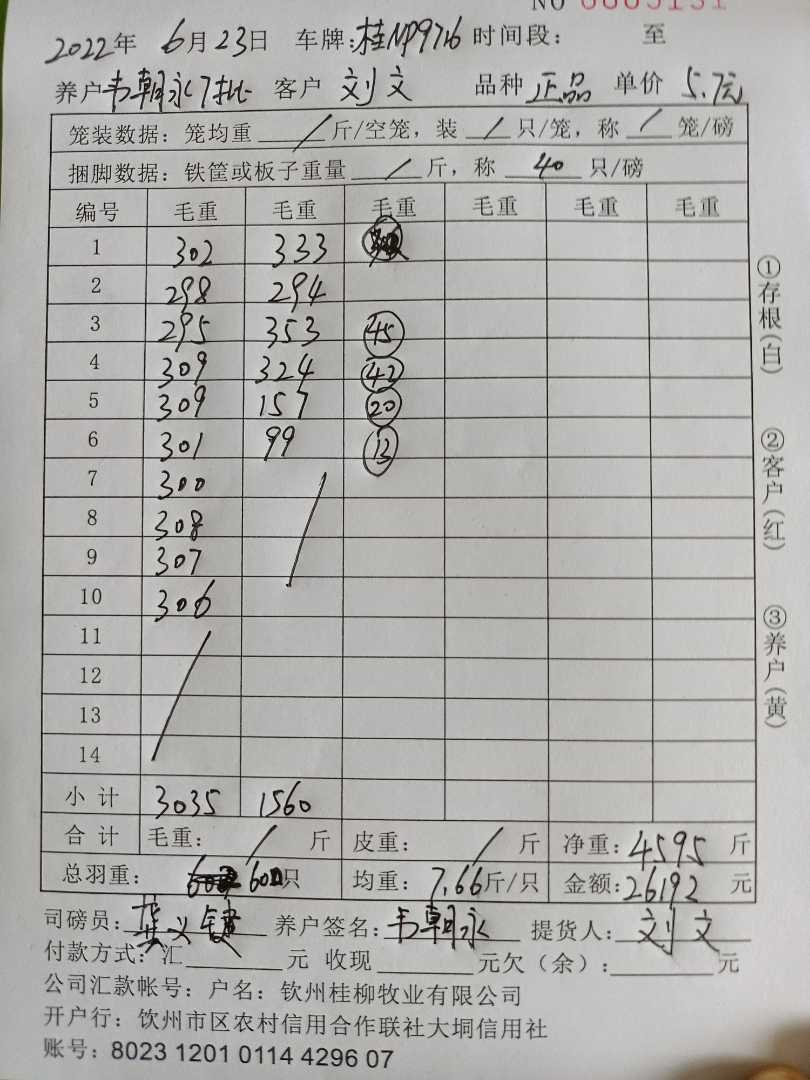 NO 0005131
2022年 6月23日 车牌:桂NP9716 时间段: 至
养户韦朝永7批 客户 刘文 品种 正品 单价 5.7元
笼装数据: 笼均重 / 斤/空笼, 装 / 只/笼, 称 / 笼/磅
捆脚数据: 铁筐或板子重量 / 斤, 称 40 只/磅
编号 毛重 毛重 毛重 毛重 毛重 毛重
1 302 333
2 298 294
3 295 353 45
4 309 324 42
5 309 157 20
6 301 99 13
7 300
8 308
9 307
10 306
11
12
13
14
小计 3035 1560
合计 毛重: / 斤 皮重: / 斤 净重: 4595 斤
总羽重: 600只 均重: 7.66斤/只 金额: 26192 元
司磅员: 龚义键 养户签名: 韦朝永 提货人: 刘文
付款方式: 汇 元 收现 元欠(余): 元
公司汇款帐号: 户名: 钦州桂柳牧业有限公司
开户行: 钦州市区农村信用合作联社大垌信用社
账号: 8023 1201 0114 4296 07
①存根(白)
②客户(红)
③养户(黄)